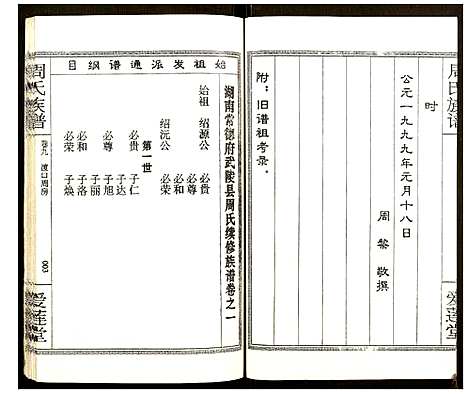 周氏族谱
时
公元一九九九年元月十八日
周黎敬撰
附：旧谱祖考录。
爱莲堂
始祖发派通谱纲目
湖南常德府武陵县周氏续修族谱卷之一
始祖 绍源公 必贵
必尊
绍沅公 必和
必荣
第一世
必贵 子仁
子达
必尊 子旭
子丽
必和 子洛
必荣 子焕
周氏族谱
卷九 渡口周房
003
爱莲堂